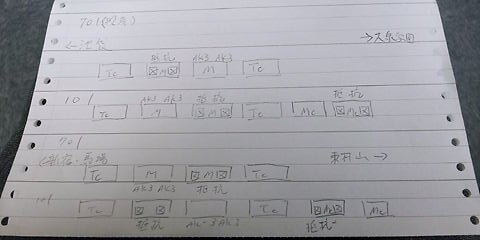 701(
←池袋 →大泉学園
抵抗 AK3 AK3
Tc M M Tc
101 AK3 AK3 抵抗 抵抗
Tc M M Tc Mc M
701
新宿・馬場 東村山→
Tc M M Tc
AK3 AK3 抵抗
101
Tc Tc Mc Mc
抵抗 AK-3 AK3 抵抗